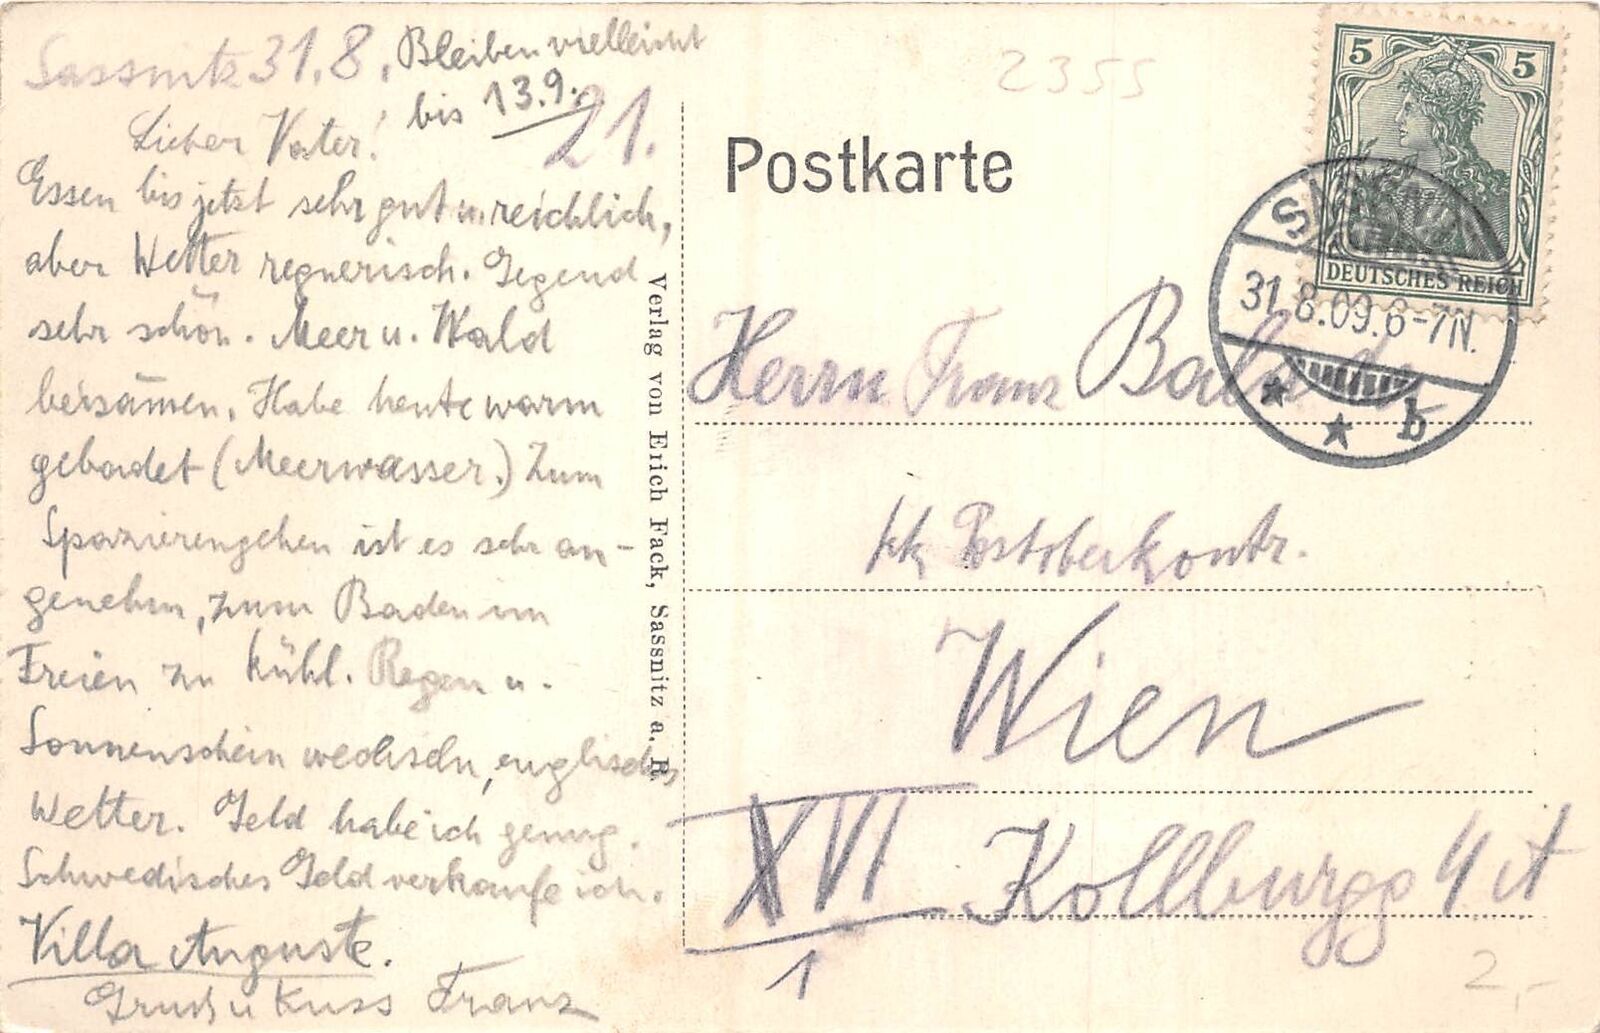 Sassnitz 31.8. Bleiben vielleicht
bis 13.9.
21.
Lieber Vater!
Essen bis jetzt sehr gut u. reichlich,
aber Wetter regnerisch. Gegend
sehr schön. Meer u. Wald
beisamen. Habe heute warm
gebadet (Meerwasser.) Zum
Spazierengehen ist es sehr an-
genehm, zum Baden im
Freien zu kühl. Regen u.
Sonnenschein wechseln, englisches
Wetter. Geld habe ich genug.
Schwedisches Geld verkaufe ich.
Villa Auguste.
Gruss u Kuss Franz
Verlag von Erich Fack, Sassnitz a. R.
2355
Postkarte
5 5
DEUTSCHES REICH
31.8.09.6-7N.
b
Herrn Franz
kk Postoberkontr.
Wien
XVI Kollburgg 4
1
2,-